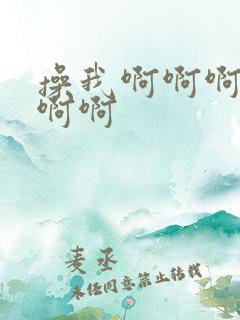 操我 啊啊啊
啊啊
麦丞
未经同意禁止转载